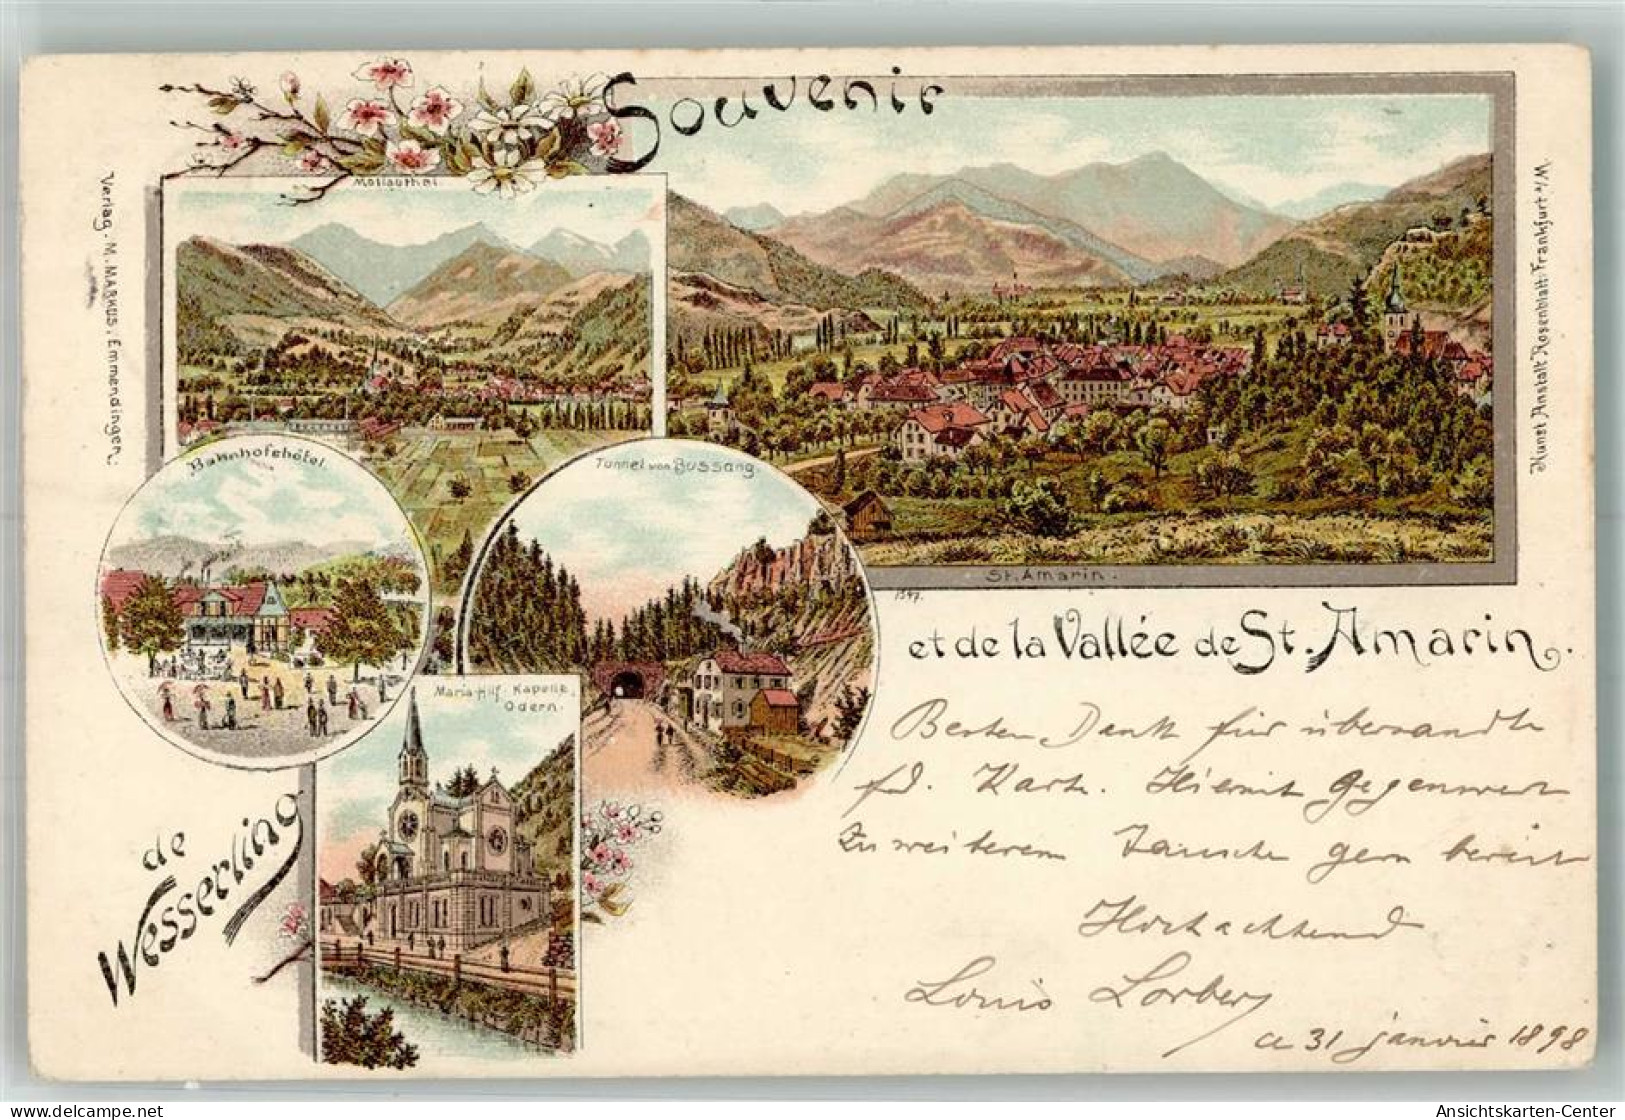 Souvenir
Mollauthal
Verlag. M. MARKUS, Emmendingen.
Kunst Anstalt Rosenblatt Frankfurt a/M
Bahnhofshôtel
Tunnel von Bussang.
St. Amarin.
1547.
et de la Vallée de St. Amarin.
Maria-Hilf-Kapelle,
Odern.
de
Wesserling
Besten Dank für übersandte
fd. Karte. Hiermit Gegenwert
Zu weiterem Tausche gern bereit
Hochachtend
Louis
a 31 janvier 1898
Ansichtskarten-Center